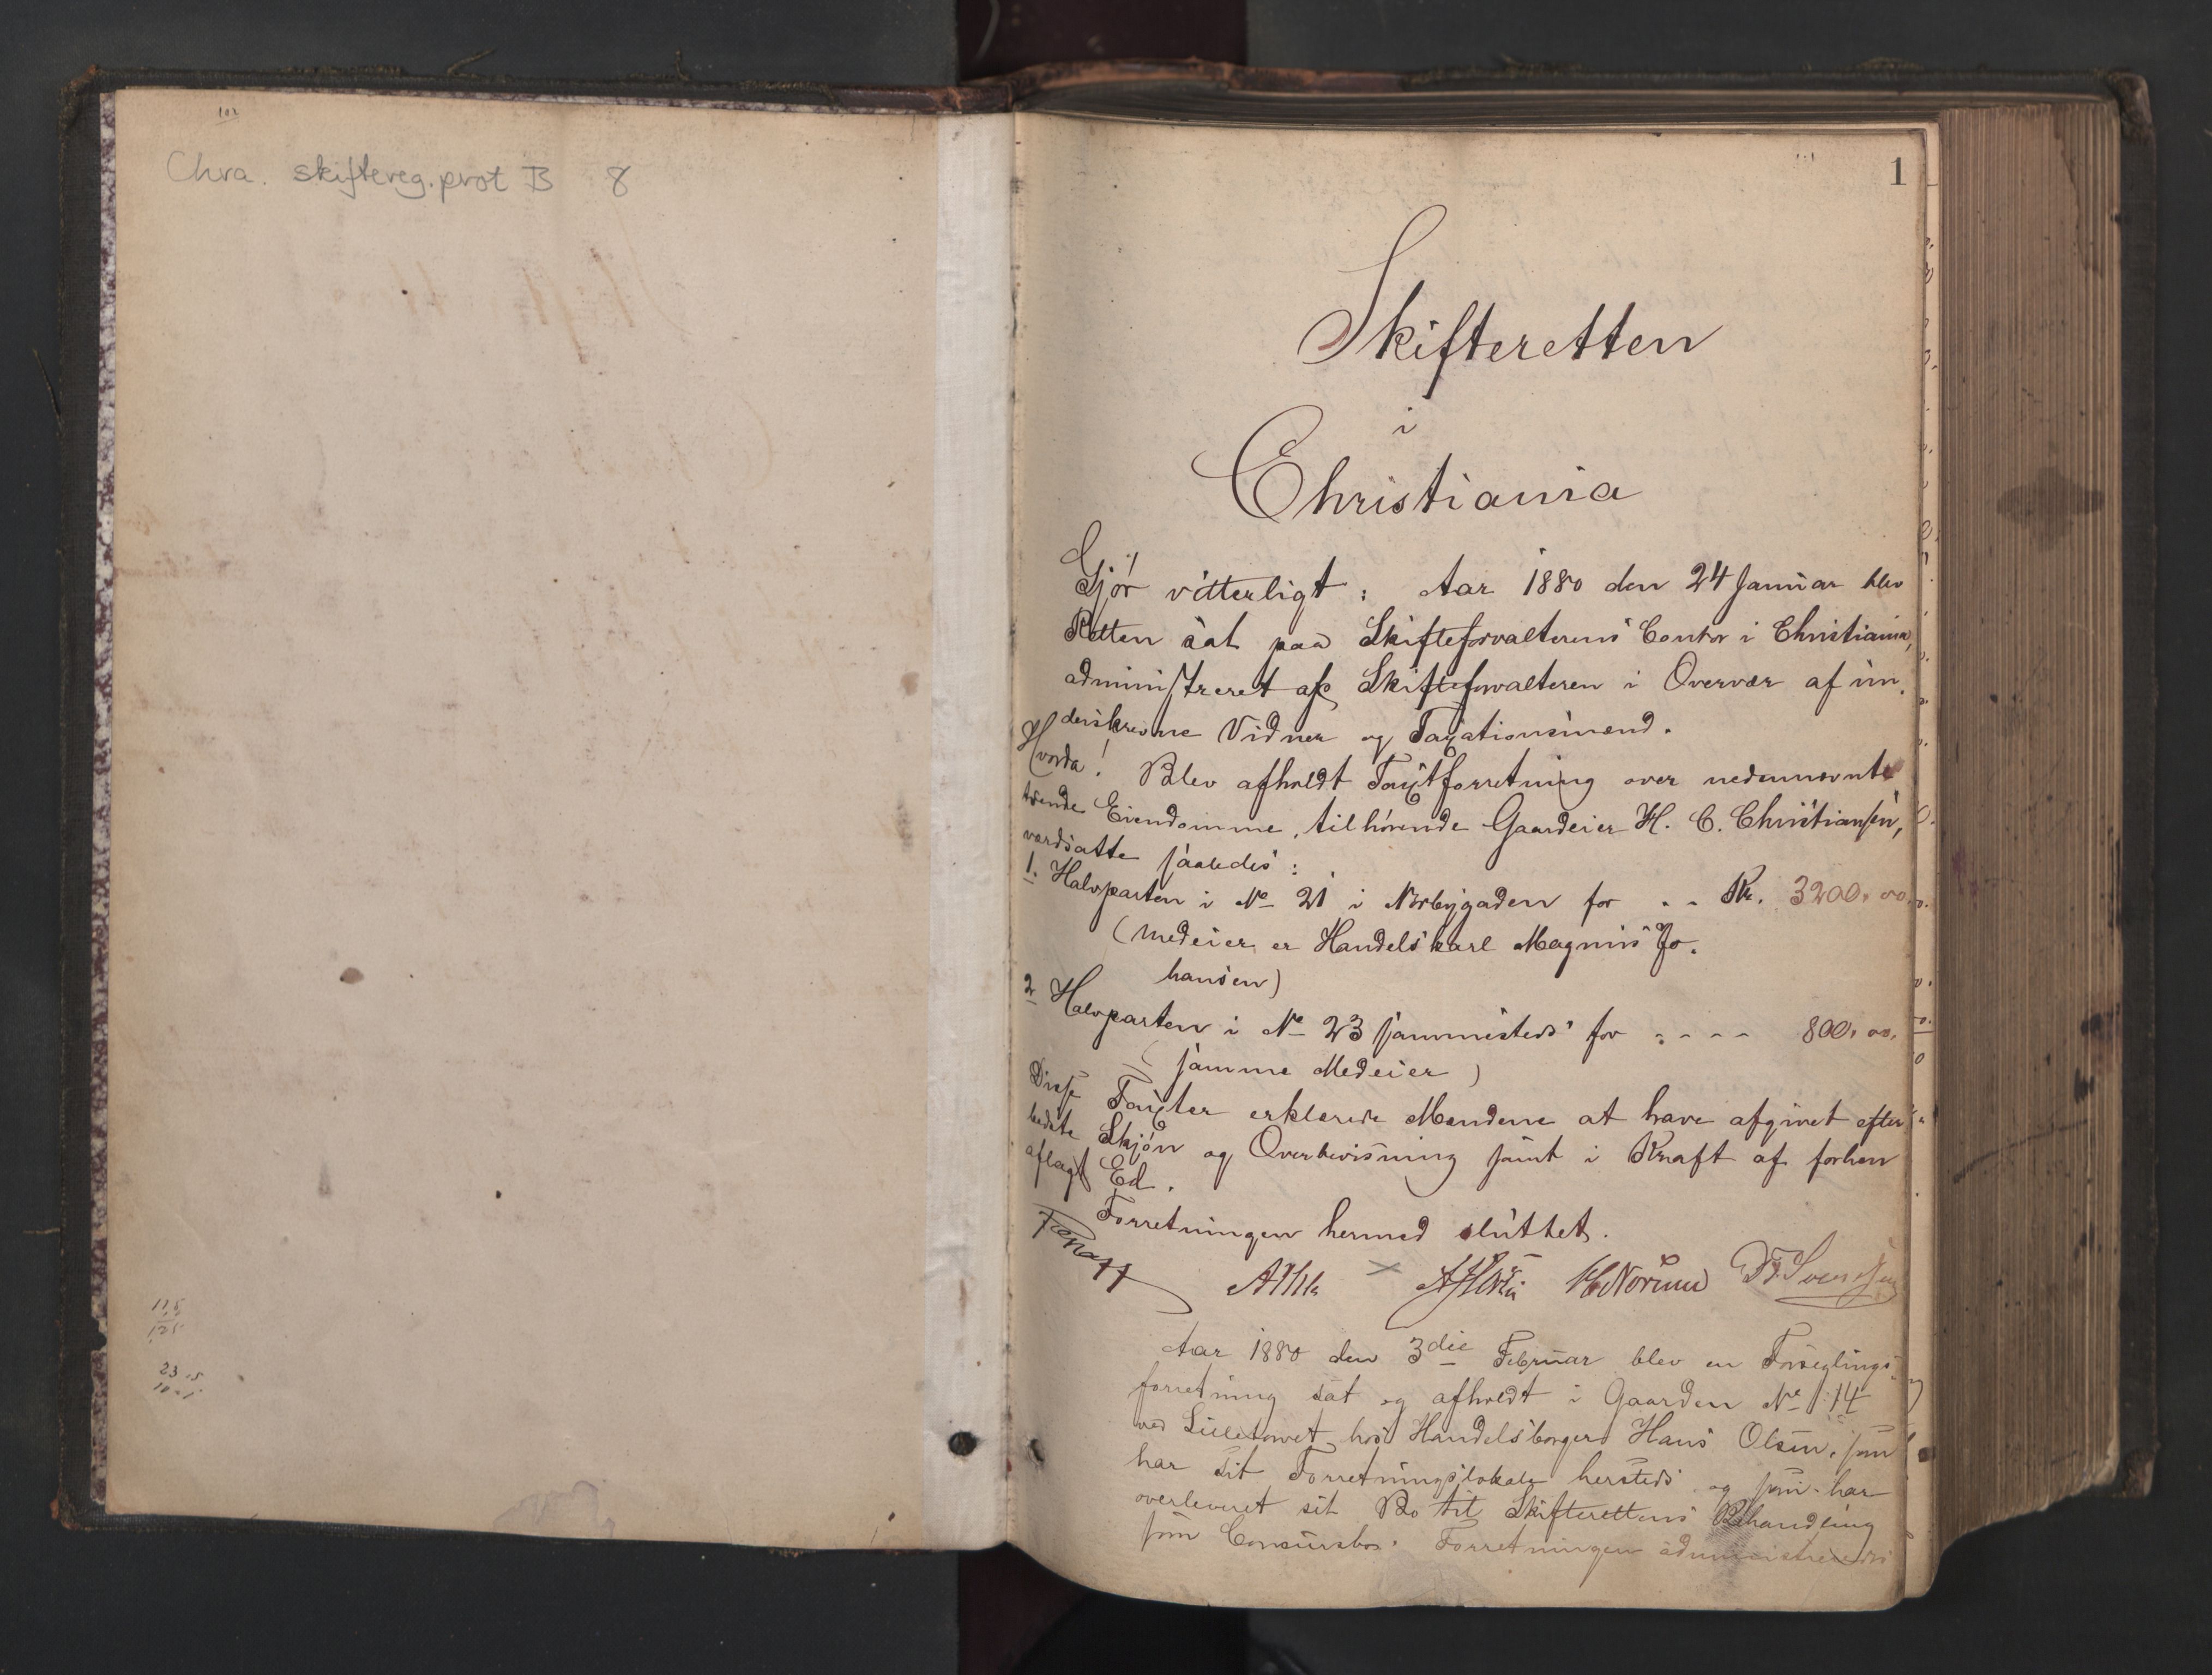 102
Chra. skiftereg.prot B 8
115
125
23 15
1
Skifteretten
i
Christiania
Gjór vitterligt: Aar 1880 den 24 Januar blev
Retten sat paa Skifteforvalterens Contor i Christiania,
administreret af Skifteforvalteren i Overvær af un-
derskrevne Vidner og Taxationsmænd.
Hvorda! Blev afholdt Taxtforretning over nedennævnte
tvende Eiendomme, tilhørende Gaardeier H. C. Christiansen,
værdsatte saaledes:
1. Halvparten i No 21 i Norbygaden for - - Kr. 3200.00.
(Medeier er Handelskarl Magnus Jo-
hansen)
2 Halvparten i No 23 sammesteds for - - - - 800.00.
(samme Medeier)
Disse Taxter erklærede Mændene at have afgivet efter
bedste Skjón og Overbevisning samt i Kraft af forhen
aflagt Ed.
Forretningen hermed sluttet.
HNorum Fr. Svendsen
Aar 1880 den 3die Februar blev en Forseglings-
forretning sat og afholdt i Gaarden No 14
ved Lilletorvet hos Handelsborger Hans Olsen, som
har sit Forretningslokale hersteds og som har
overleveret sit Bo til Skifterettens Behandling
som Concursbo. Forretningen administreredes